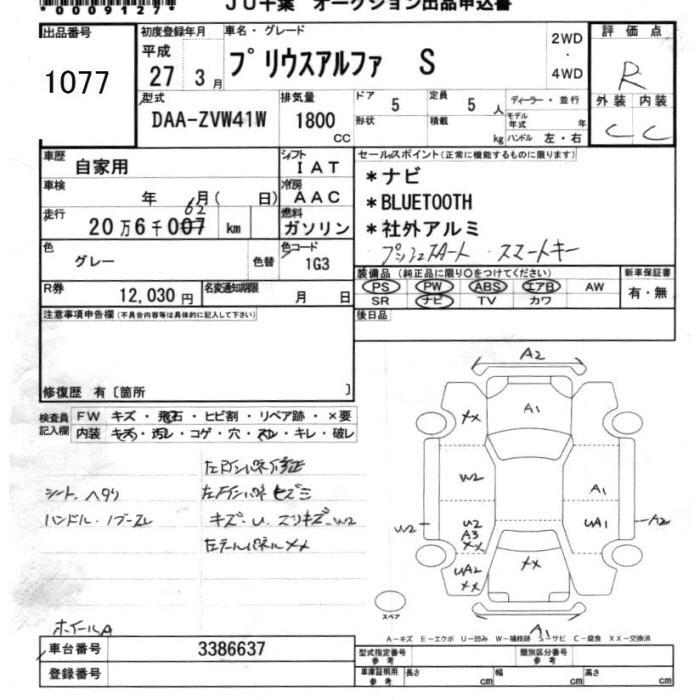 00091279
JU千葉 オークション出品申込書
出品番号
1077
初度登録年月
平成
27 3月
車名・グレード
プリウスアルファ S
2WD
・
4WD
評価点
R
外装 内装
C C
型式
DAA-ZVW41W
排気量
1800
CC
ドア 5
形状
定員 5 人
積載 kg
ディーラー・並行
モデル年式 年
ハンドル 左・右
車歴
自家用
シフト
IAT
車検
年 6月( 日)
冷房
AAC
走行
20万6千007 km
62
燃料
ガソリン
色
グレー
色替
色コード
1G3
R券
12,030円
名変通知期限
月 日
セールスポイント(正常に機能するものに限ります)
*ナビ
*BLUETOOTH
*社外アルミ
プッシュスタート スマートキー
装備品(純正品に限り○をつけてください)
PS PW ABS エアB AW
SR ナビ TV カワ
新車保証書
有・無
後日品
注意事項申告欄(不具合内容等は具体的に記入して下さい)
修復歴 有〔箇所 〕
検査員
記入欄
FW キズ・飛石・ヒビ割・リペア跡・×要
内装 キズ・汚レ・コゲ・穴・スレ・キレ・破レ
シート、ヘタリ
ハンドル・ノブ=スレ
キズ・U、スリキズ、W2
左テールパネルXX
ホイールA
A2
A1
XX
W2
A1
W2
U2
A3
XX
UA1
A2
UA2
XX
XX
A1
スペア
A-キズ E-エクボ U-凹み W-補修跡 S-サビ C-腐食 XX-交換済
車台番号
3386637
登録番号
型式指定番号
参考
類別区分番号
参考
車庫証明用
参考
長さ cm
幅 cm
高さ cm